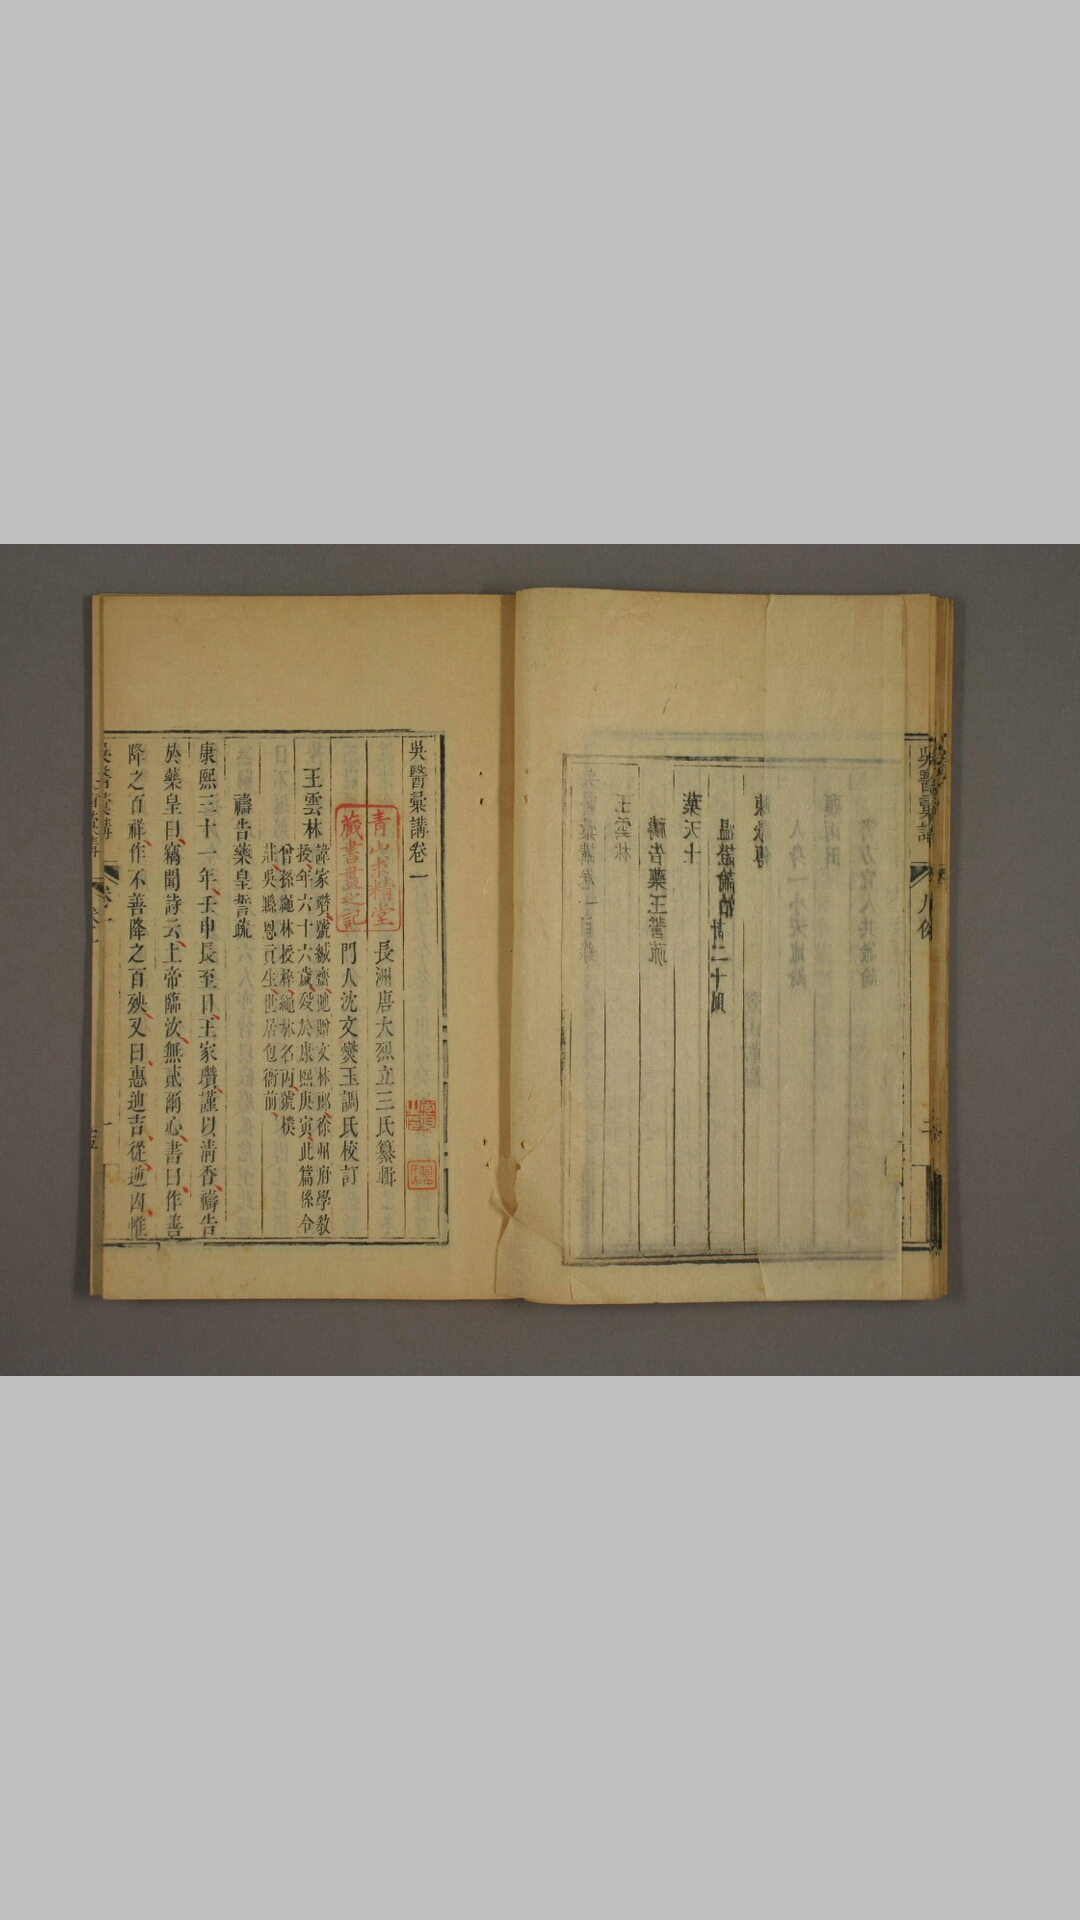 吳醫彙講卷一
長洲唐大烈立三氏纂輯
門人沈文燮玉調氏校訂
王雲林
諱家瓚號緘齋貤贈文林郎徐州府學教
授年六十六歲歿於康熙庚寅此篇係令
曾孫繩林授梓繩林名丙號樸
莊吳縣恩貢生世居包衙前
禱告藥皇誓疏
康熙三十一年壬申長至日王家瓚謹以清香禱告
於藥皇曰竊聞詩云上帝臨汝無貳爾心書曰作善
降之百祥作不善降之百殃又曰惠迪吉從逆凶惟
吳醫彙講
青山求精堂
藏書畫之記
吳醫彙講
吳醫彙講卷一目錄
王雲林
禱告藥王誓疏
葉天士
溫證論治計二十則
人身一小天地論
書方宜人共識論